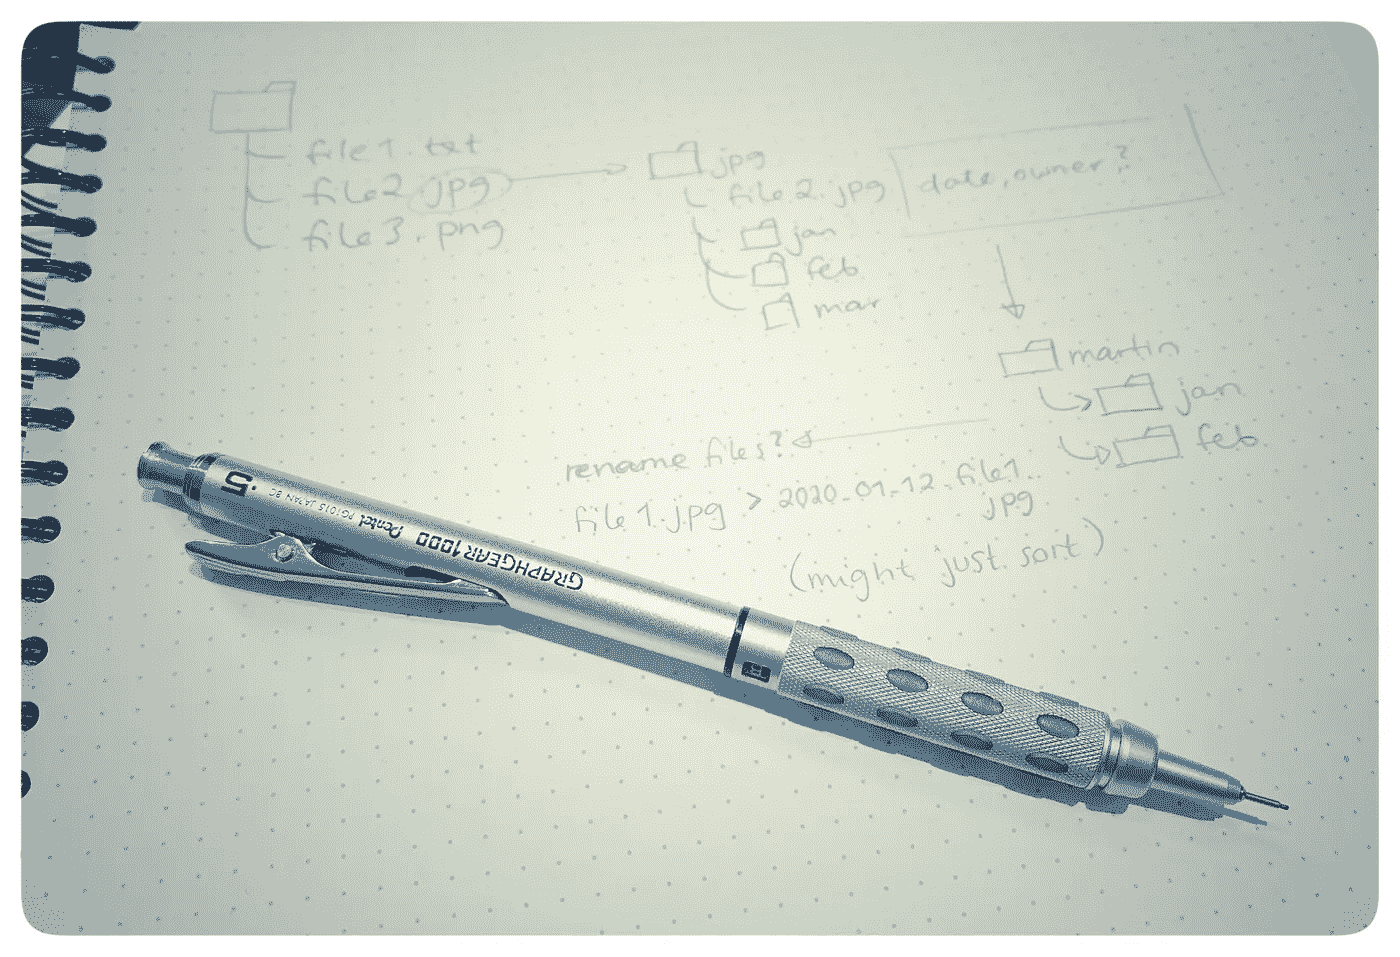 file1.txt
file2.jpg
file3.png
jpg
file2.jpg
jan
feb
mar
date, owner,?
martin
jan
feb
rename files?
file1.jpg > 2020_01_12_file1.
jpg
(might just sort)
.5
PG1015 JAPAN
Pentel
GRAPHGEAR 1000
B